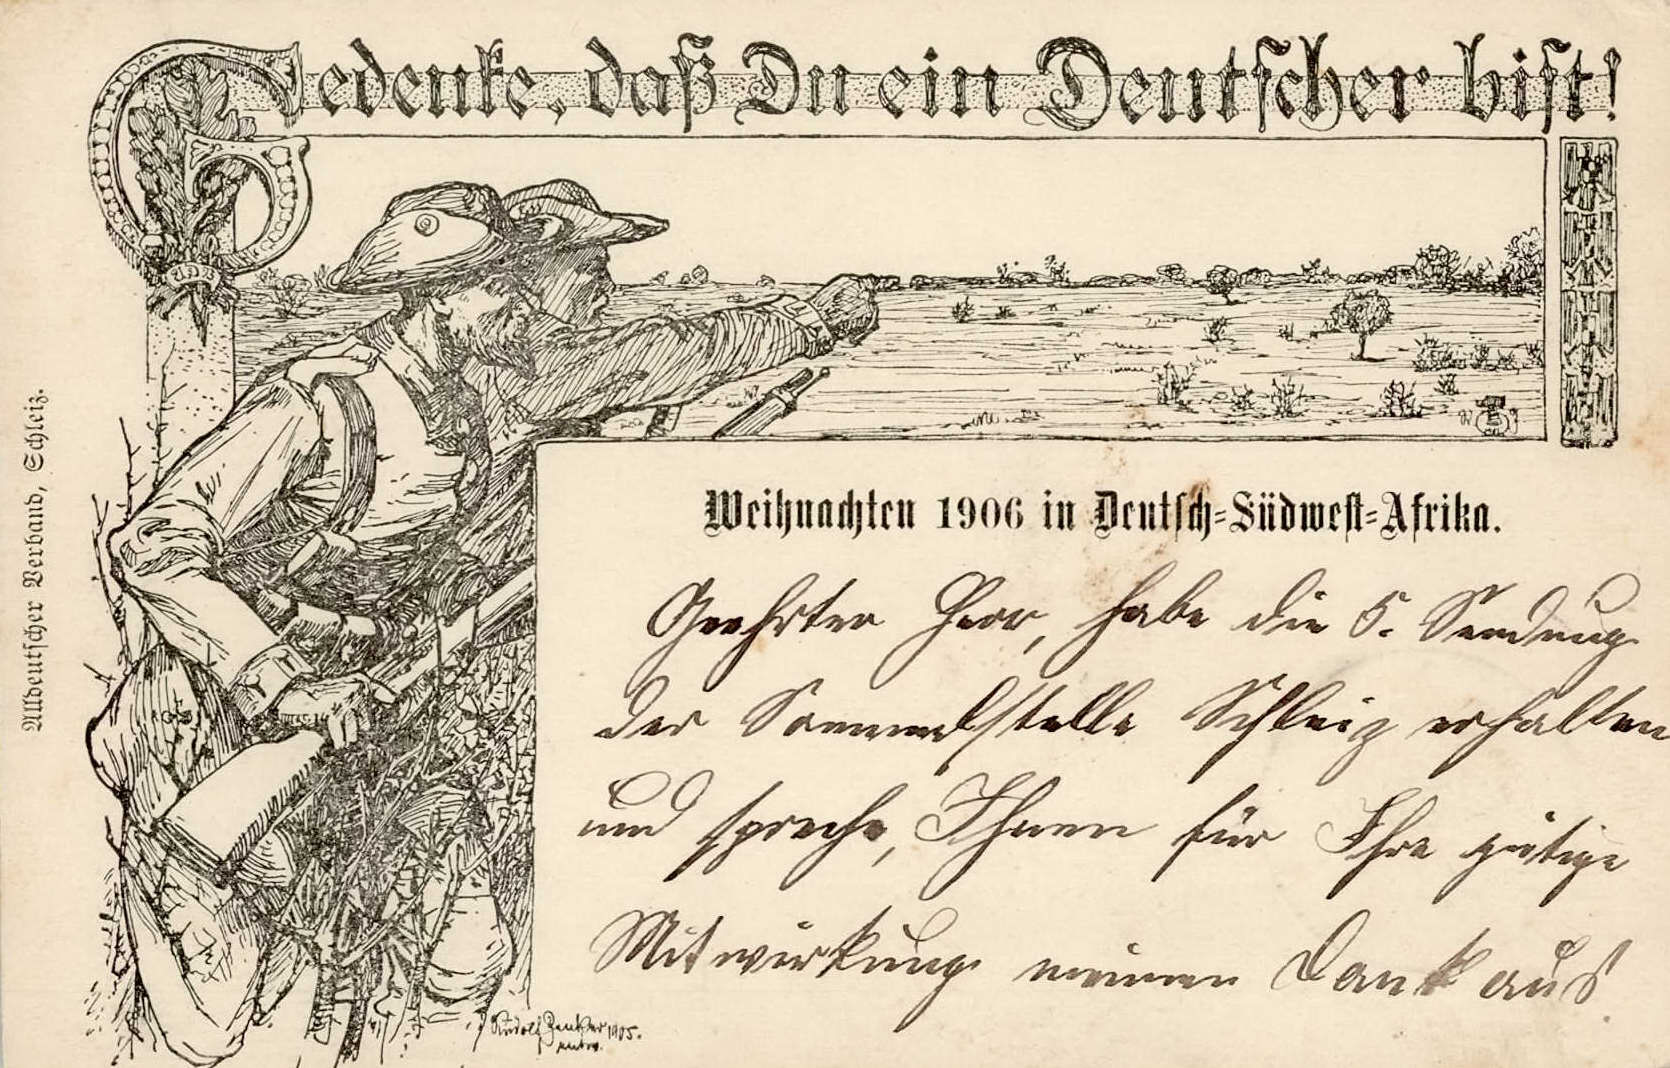 Gedenke, daß Du ein Deutscher bist!
Weihnachten 1906 in Deutsch-Südwest-Afrika.
Geehrter Herr, habe die 5. Sendung
der Sammelstelle Schleiz erhalten
und spreche, Ihnen für Ihre gütige
Mitwirkung meinen Dank aus
Alldeutscher Verband, Schleiz.
Rudolf 1905.